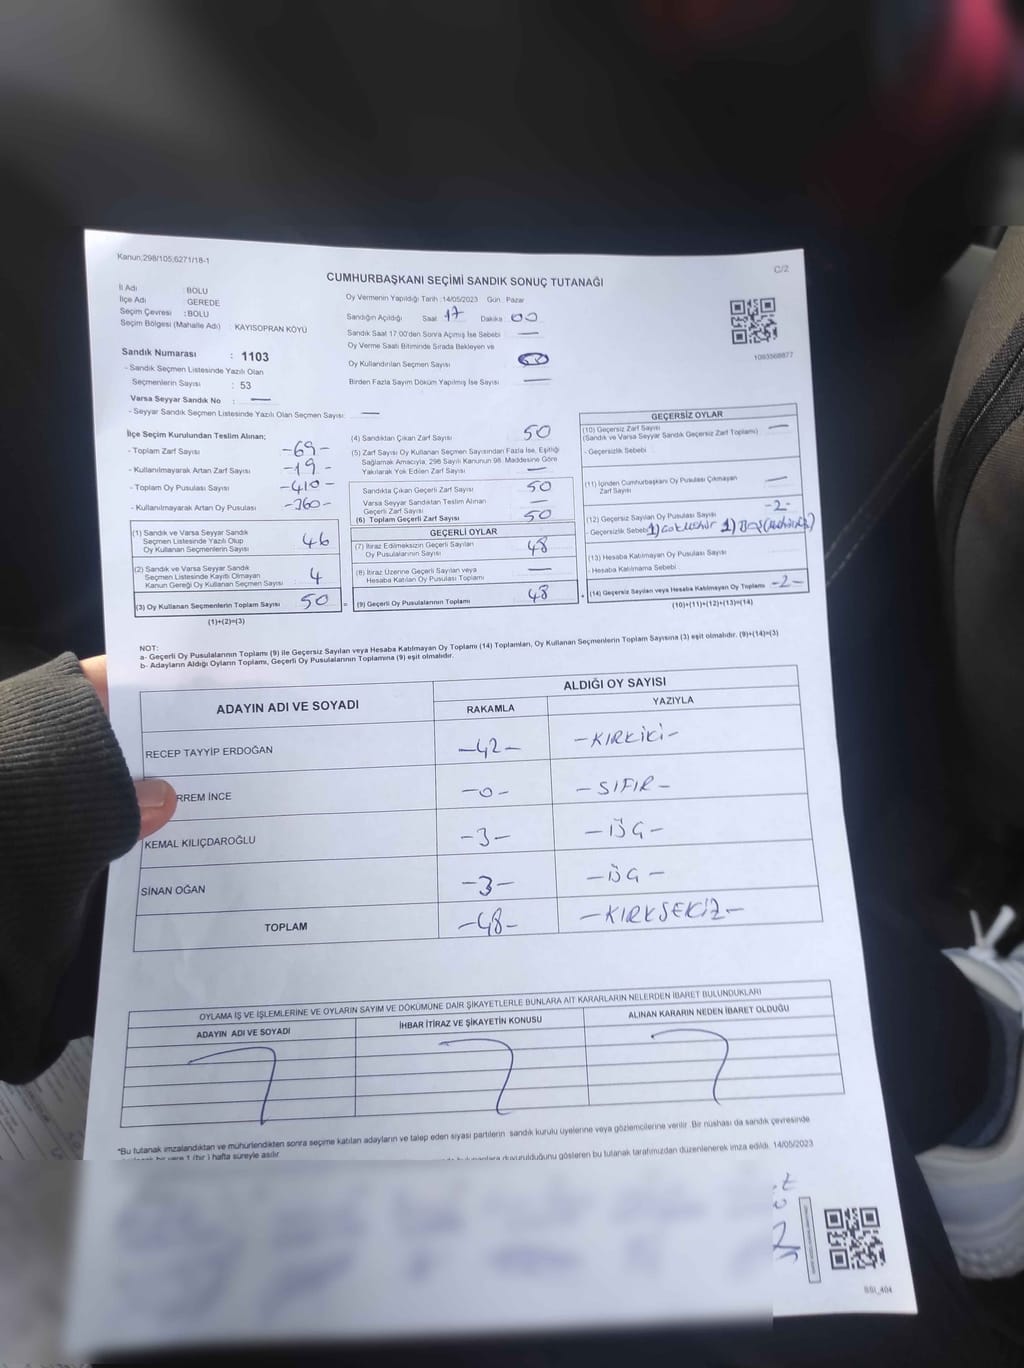 Kanun;298/105;6271/18-1
C/2
CUMHURBAŞKANI SEÇİMİ SANDIK SONUÇ TUTANAĞI
İl Adı : BOLU
İlçe Adı : GEREDE
Seçim Çevresi : BOLU
Seçim Bölgesi (Mahalle Adı) : KAYISOPRAN KÖYÜ
Sandık Numarası : 1103
- Sandık Seçmen Listesinde Yazılı Olan
Seçmenlerin Sayısı : 53
Varsa Seyyar Sandık No : —
- Seyyar Sandık Seçmen Listesinde Yazılı Olan Seçmen Sayısı: —
Oy Vermenin Yapıldığı Tarih :14/05/2023 Gün : Pazar
Sandığın Açıldığı Saat 17 Dakika 00
Sandık Saat 17.00'den Sonra Açımış İse Sebebi —
Oy Verme Saati Bitiminde Sırada Bekleyen ve
Oy Kullandırılan Seçmen Sayısı
Birden Fazla Sayım Döküm Yapılmış İse Sayısı —
1093568877
İlçe Seçim Kurulundan Teslim Alınan;
- Toplam Zarf Sayısı -69-
- Kullanılmayarak Artan Zarf Sayısı -19-
- Toplam Oy Pusulası Sayısı -410-
- Kullanılmayarak Artan Oy Pusulası -360-
(1) Sandık ve Varsa Seyyar Sandık
Seçmen Listesinde Yazılı Olup
Oy Kullanan Seçmenlerin Sayısı 46
(2) Sandık ve Varsa Seyyar Sandık
Seçmen Listesinde Kayıtlı Olmayan
Kanun Gereği Oy Kullanan Seçmen Sayısı 4
(3) Oy Kullanan Seçmenlerin Toplam Sayısı 50
(1)+(2)=(3)
(4) Sandıktan Çıkan Zarf Sayısı 50
(5) Zarf Sayısı Oy Kullanan Seçmen Sayısından Fazla İse, Eşitliği
Sağlamak Amacıyla, 298 Sayılı Kanunun 98. Maddesine Göre
Yakılarak Yok Edilen Zarf Sayısı —
Sandıkta Çıkan Geçerli Zarf Sayısı 50
Varsa Seyyar Sandıktan Teslim Alınan
Geçerli Zarf Sayısı —
(6) Toplam Geçerli Zarf Sayısı 50
GEÇERLİ OYLAR
(7) İtiraz Edilmeksizin Geçerli Sayılan
Oy Pusulalarının Sayısı 48
(8) İtiraz Üzerine Geçerli Sayılan veya
Hesaba Katılan Oy Pusulası Toplamı —
= (9) Geçerli Oy Pusulalarının Toplamı 48
GEÇERSİZ OYLAR
(10) Geçersiz Zarf Sayısı —
(Sandık ve Varsa Seyyar Sandık Geçersiz Zarf Toplamı)
- Geçersizlik Sebebi
(11) İçinden Cumhurbaşkanı Oy Pusulası Çıkmayan
Zarf Sayısı —
(12) Geçersiz Sayılan Oy Pusulası Sayısı -2-
- Geçersizlik Sebebi 1) 1) Boş
(13) Hesaba Katılmayan Oy Pusulası Sayısı
- Hesaba Katılmama Sebebi
+ (14) Geçersiz Sayılan veya Hesaba Katılmayan Oy Toplamı -2-
(10)+(11)+(12)+(13)=(14)
NOT:
a- Geçerli Oy Pusulalarının Toplamı (9) ile Geçersiz Sayılan veya Hesaba Katılmayan Oy Toplamı (14) Toplamları, Oy Kullanan Seçmenlerin Toplam Sayısına (3) eşit olmalıdır. (9)+(14)=(3)
b- Adayların Aldığı Oyların Toplamı, Geçerli Oy Pusulalarının Toplamına (9) eşit olmalıdır.
ADAYIN ADI VE SOYADI
ALDIĞI OY SAYISI
RAKAMLA YAZIYLA
RECEP TAYYİP ERDOĞAN -42- -KIRKİKİ-
RREM İNCE -0- -SIFIR-
KEMAL KILIÇDAROĞLU -3- -ÜÇ-
SİNAN OĞAN -3- -ÜÇ-
TOPLAM -48- -KIRKSEKİZ-
OYLAMA İŞ VE İŞLEMLERİNE VE OYLARIN SAYIM VE DÖKÜMÜNE DAİR ŞİKAYETLERLE BUNLARA AİT KARARLARIN NELERDEN İBARET BULUNDUKLARI
ADAYIN ADI VE SOYADI İHBAR İTİRAZ VE ŞİKAYETİN KONUSU ALINAN KARARIN NEDEN İBARET OLDUĞU
*Bu tutanak imzalandıktan ve mühürlendikten sonra seçime katılan adayların ve talep eden siyasi partilerin sandık kurulu üyelerine veya gözlemcilerine verilir. Bir nüshası da sandık çevresinde
bir yere 1 (bir ) hafta süreyle asılır duyurulduğunu gösteren bu tutanak tarafımızdan düzenlenerek imza edildi. 14/05/2023
SSI_404